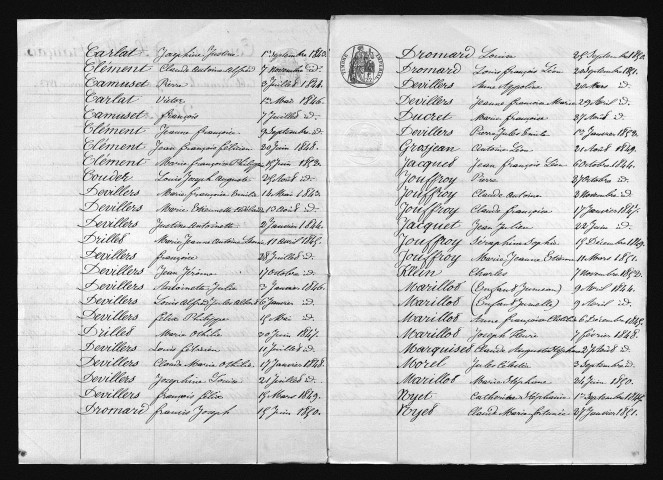 Carlat Josephine Justine 1er Septembre 1843.
Clément Claude Antoine Alfred 7 Novembre id.
Camuset Pierre 3 Juillet 1844.
Carlat Victor 12 Mai 1846.
Camuset François 7 Juillet id.
Clément Jeanne françoise 9 Septembre id.
Clément Jean françois Félicien 20 Juin 1848.
Clément Marie françoise Philippe 15 Juin 1852.
Coudet Louis Joseph August 25 Août id.
Devillers Marie françoise Emilie 14 Mars 1843.
Devillers Marie Etiennette 13 Août id.
Devillers Justine Antoinette 2 Janvier 1844.
Drilles Marie Jeanne Antoine 11 Avril 1845.
Devillers françoise 28 Juillet id.
Devillers Jean Jérôme 17 Octobre id.
Devillers Antoinette Julie 3 Janvier 1846.
Devillers Louis Alfred Jules 6 Janvier id.
Devillers félix Philippe 15 Mai id.
Drilles Marie Othilie 30 Juin 1847.
Devillers Louis félicien 11 Juillet id.
Devillers Claude Marie Othilie 17 Janvier 1848.
Devillers Josephine Louise 21 Juillet id.
Devillers françois félix 15 Mars 1849.
Dromard francis Joseph 15 Juin 1850.
Dromard Louise 25 Septembre 1850.
Dromard Louis françois Léon 20 Septembre 1851.
Devillers Anne Appoline 20 Mars id.
Devillers Jeanne françoise Marie 29 Avril id.
Ducret Marie françoise 27 Août id.
Devillers Pierre Jules Emile 1er Janvier 1853.
Grosjean Léon 21 Août 1849.
Jacques Jean françois Léon 6 Octobre 1844.
Jouffroy Pierre 27 Octobre id.
Jouffroy Claude Antoine 2 Novembre id.
Jouffroy Claude françoise 17 Janvier 1847.
Jacquet Jean Julien 22 Juin id.
Jouffroy Séraphine Sophie 15 Décembre 1849.
Jouffroy Marie Jeanne 11 Mars 1851.
Klein Charles 7 Novembre 1852.
Marillos (Enfant Jumeau) 9 Avril 1844.
Marillos (Enfant Jumelle) 9 Avril id.
Marillos Anne françoise Clotilde 6 Décembre 1845.
Marillos Joseph Henri 7 février 1848.
Marquises Claude Auguste Stéphane 27 Août id.
Morel Jules Célestin 3 Septembre id.
Marillos Marie Stéphanie 24 Juin 1850.
Noyet Catherine Stéphanie 1er Septembre
Noyes Claude Marie 27 Janvier 1851.